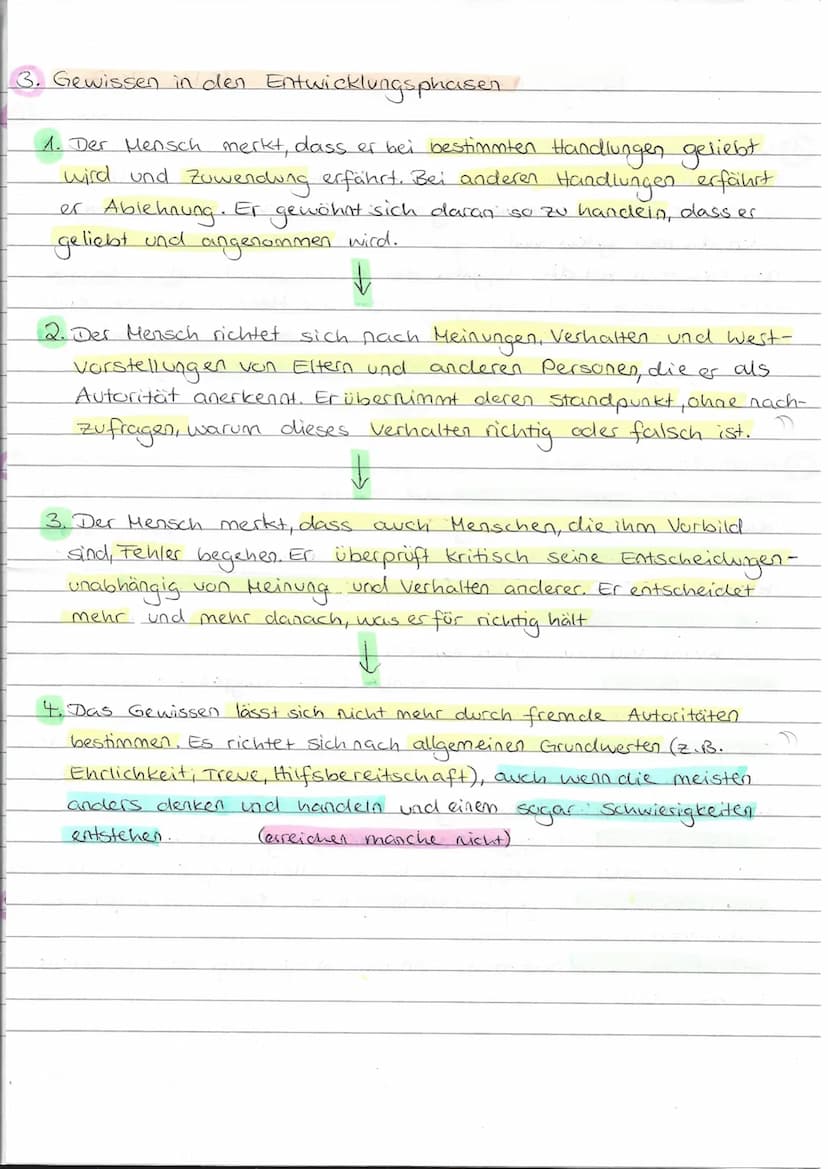 3. Gewissen in den Entwicklungsphasen
1. Der Mensch merkt, dass er bei bestimmten Handlungen geliebt
wird und Zuwendung erfährt. Bei anderen Handlungen erfährt
er Ablehnung. Er gewöhnt sich daran so zu handeln, dass er
geliebt und angenommen wird.
↓
2. Der Mensch richtet sich nach Meinungen, Verhalten und Wert-
vorstellungen von Eltern und anderen Personen, die er als
Autorität anerkennt. Er übernimmt deren Standpunkt, ohne nach-
zufragen, warum dieses Verhalten richtig oder falsch ist.
↓
3. Der Mensch merkt, dass auch Menschen, die ihm Vorbild
sind, Fehler begehen. Er überprüft kritisch seine Entscheidungen -
unabhängig von Meinung und Verhalten anderer. Er entscheidet
mehr und mehr danach, was er für richtig hält
↓
4. Das Gewissen lässt sich nicht mehr durch fremde Autoritäten
bestimmen. Es richtet sich nach allgemeinen Grundwerten (z.B.
Ehrlichkeit, Treue, Hilfsbereitschaft), auch wenn die meisten
anders denken und handeln und einem sogar Schwierigkeiten
entstehen. (erreichen manche nicht)